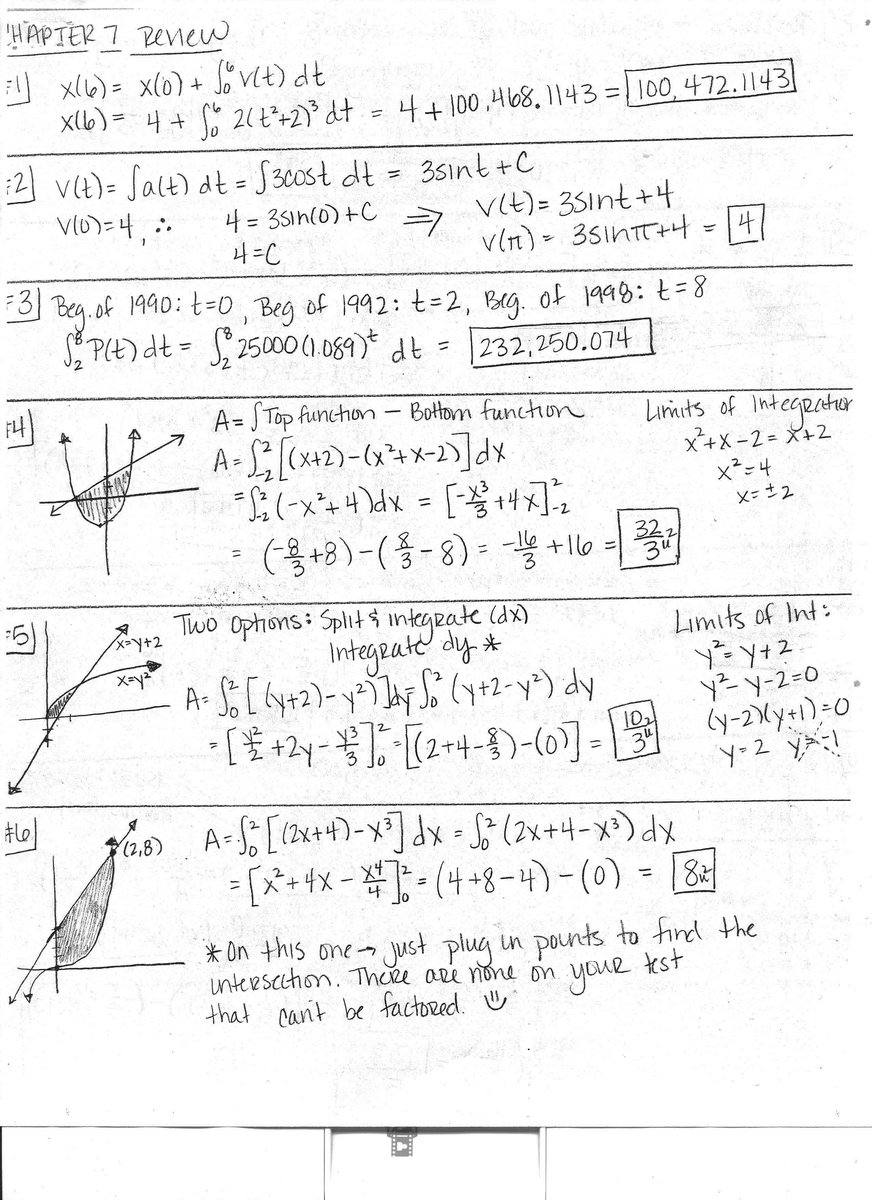 CHAPTER 7 Review
#1] x(6) = x(0) + ∫₀⁶ v(t) dt
x(6) = 4 + ∫₀⁶ 2(t²+2)³ dt = 4 + 100,468.1143 = 100,472.1143
#2] v(t) = ∫a(t) dt = ∫3cost dt = 3sint + C
v(0)=4, ∴ 4 = 3sin(0)+C ⇒ v(t) = 3sint+4
4=C v(π) = 3sinπ+4 = 4
#3] Beg. of 1990: t=0, Beg of 1992: t=2, Beg. of 1998: t=8
∫₂⁸ P(t) dt = ∫₂⁸ 25000(1.089)^t dt = 232,250.074
#4] A = ∫Top function − Bottom function
A = ∫₋₂² [(x+2)−(x²+x−2)] dx
= ∫₋₂² (−x²+4)dx = [−x³/3 + 4x]₋₂²
= (−8/3 + 8) − (8/3 − 8) = −16/3 + 16 = 32/3 u²
Limits of Integration
x²+x−2 = x+2
x²=4
x=±2
#5] Two options: Split & integrate (dx)
Integrate dy *
x=y+2
x=y²
A = ∫₀² [(y+2)−y²)] dy = ∫₀² (y+2−y²) dy
= [y²/2 + 2y − y³/3]₀² = [(2+4−8/3)−(0)] = 10/3 u²
Limits of Int:
y² = y+2
y²−y−2=0
(y−2)(y+1)=0
y=2 y=−1
#6] (2,8)
A = ∫₀² [(2x+4)−x³] dx = ∫₀² (2x+4−x³) dx
= [x²+4x − x⁴/4]₀² = (4+8−4)−(0) = 8u²
* On this one → just plug in points to find the
intersection. There are none on your test
that can't be factored. ☺